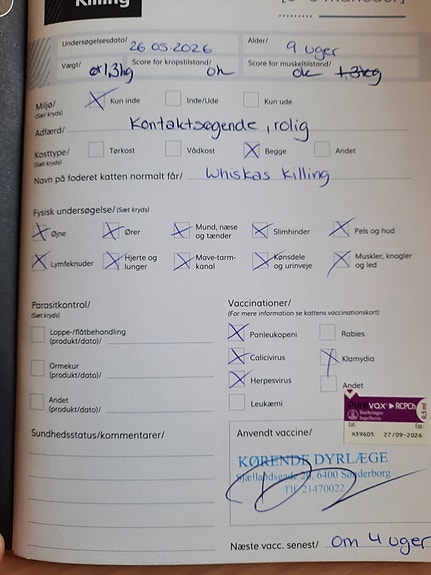 Killing
Undersøgelsesdato/ 26 05.2026 Alder/ 9 uger
Vægt/ 1,3kg Score for kropstilstand/ ok Score for muskeltilstand/ ok 1,3kg
Miljø/ (Sæt kryds) Kun inde Inde/Ude Kun ude
Adfærd/ Kontaktsøgende, rolig
Kosttype/ (Sæt kryds) Tørkost Vådkost Begge Andet
Navn på foderet katten normalt får/ Whiskas killing
Fysisk undersøgelse/ (Sæt kryds)
Øjne Ører Mund, næse og tænder Slimhinder Pels og hud
Lymfeknuder Hjerte og lunger Mave-tarm-kanal Kønsdele og urinveje Muskler, knogler og led
Parasitkontrol/
(Sæt kryds)
Loppe-/flåtbehandling
(produkt/dato)/
Ormekur
(produkt/dato)/
Andet
(produkt/dato)/
Sundhedsstatus/kommentarer/
Vaccinationer/
(For mere information se kattens vaccinationskort)/
Panleukopeni Rabies
Calicivirus Klamydia
Herpesvirus Andet
Leukæmi
vax RCPCh
Boehringer
Ingelheim
0,5 ml
Lot: Exp:
N39605 27/09-2026
Anvendt vaccine/
KØRENDE DYRLÆGE
Sjællandsgade 20, 6400 Sønderborg
Tlf 21470022
Næste vacc. senest/ om 4 uger